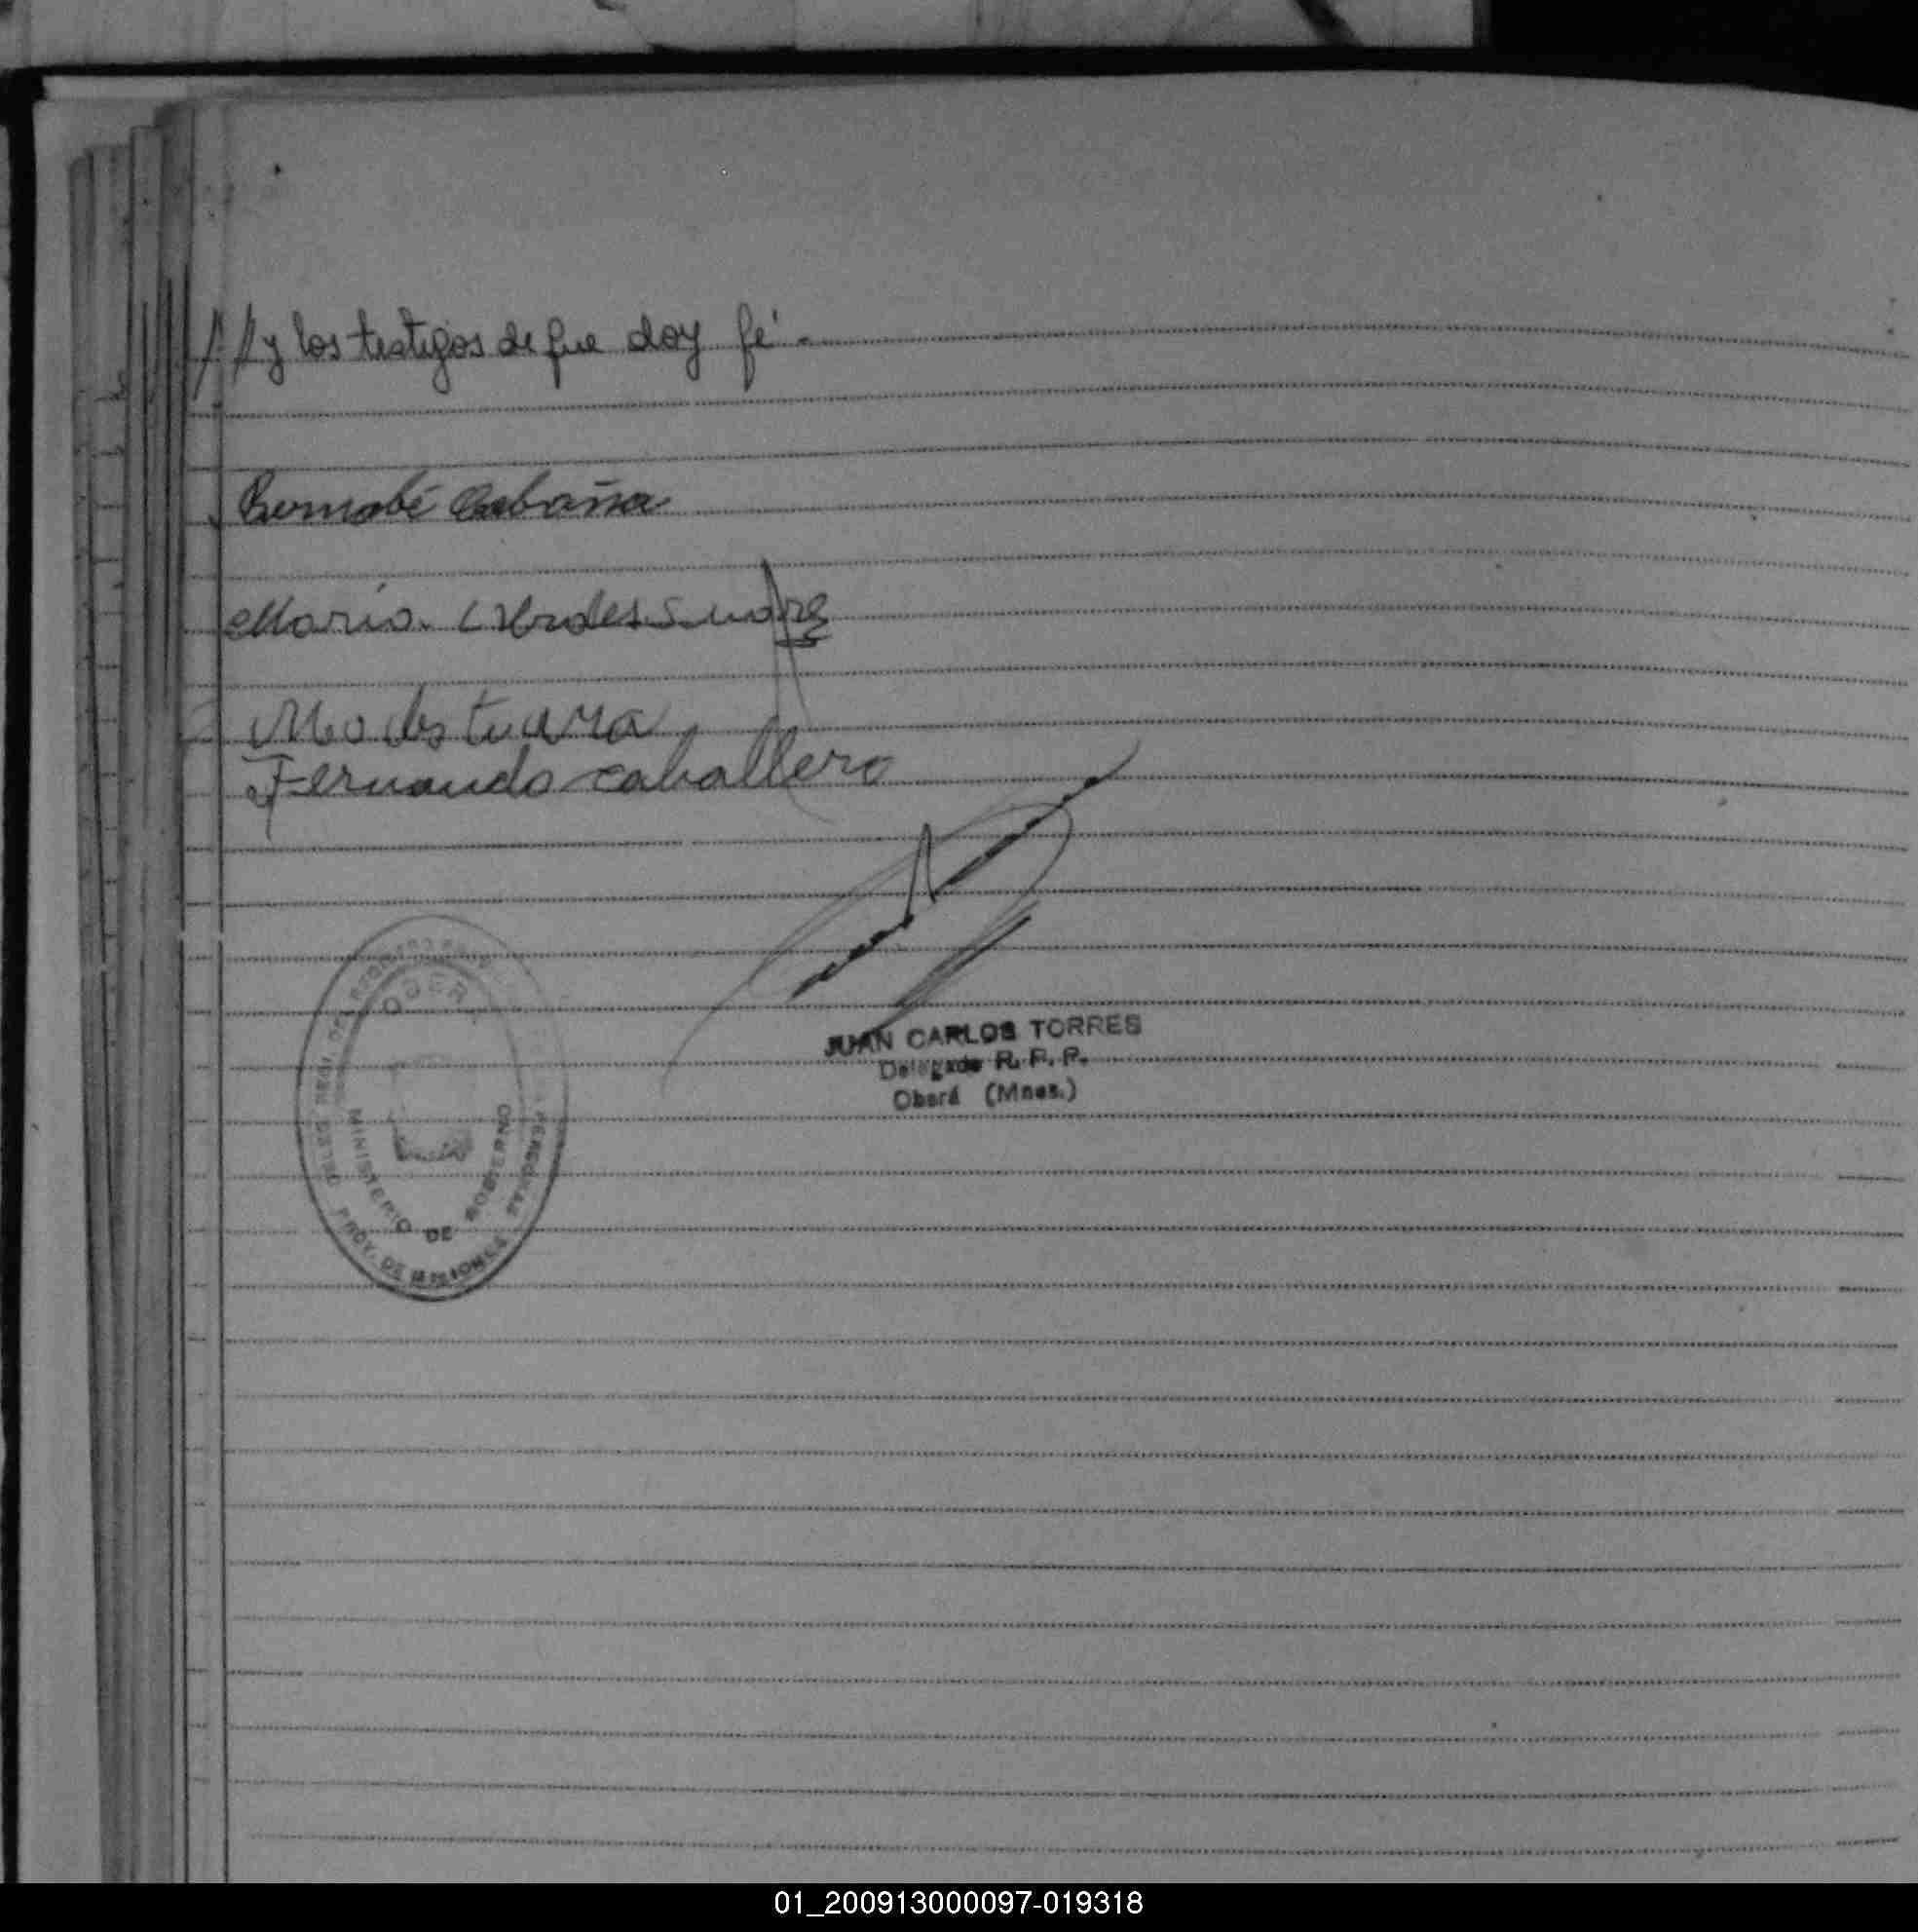 // y los testigos de que doy fé.-
Bernabé Cabaña
Maria
Fernando caballero
JUAN CARLOS TORRES
Delegado R. P. P.
Oberá (Mnes.)
OBERÁ
MINISTERIO DE GOBIERNO
PROV. DE MISIONES
PERSONAS
01_200913000097-019318